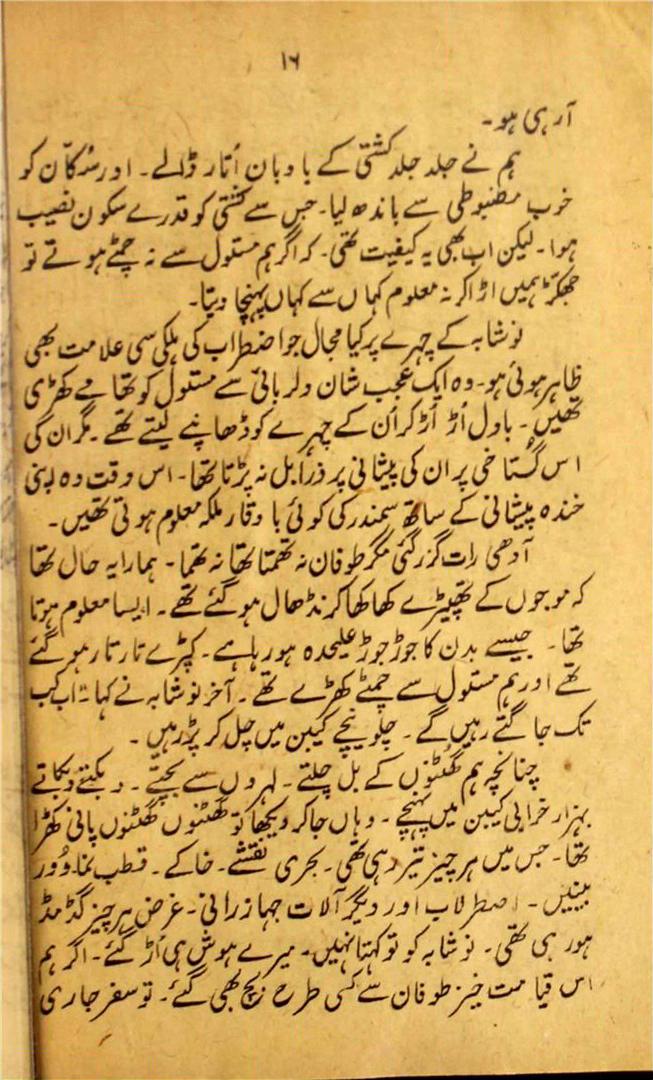 ۱۶
آ رہی ہو۔
ہم نے جلد جلد کشتی کے بادبان اُتار ڈالے۔ اور سُرکّان کو
خوب مضبوطی سے باندھ لیا۔ جس سے کشتی کو قدرے سکون نصیب
ہوا۔ لیکن اب بھی یہ کیفیت تھی۔ کہ اگر ہم مستول سے نہ چمٹے ہوتے تو
جھکڑ ہمیں اڑا کر نہ معلوم کہاں سے کہاں پہنچا دیتا۔
نوشابہ کے چہرے پر کیا مجال جو اضطراب کی ہلکی سی علامت بھی
ظاہر ہوئی ہو۔ وہ ایک عجب شان دلربائی سے مستول کو تھامے کھڑی
تھیں۔ بادل اُڑ اُڑ کر اُن کے چہرے کو ڈھانپے لیتے تھے۔ مگر ان کی
اس گُستاخی پر ان کی پیشانی پر ذرا بل نہ پڑتا تھا۔ اس وقت وہ اپنی
خندہ پیشانی کے ساتھ سمندر کی کوئی باوقار ملکہ معلوم ہوتی تھیں۔
آدھی رات گزر گئی مگر طوفان نہ تھمتا تھا نہ تھما۔ ہمارا یہ حال تھا
کہ موجوں کے تھپیڑے کھا کھا کر نڈھال ہو گئے تھے۔ ایسا معلوم ہوتا
تھا۔ جیسے بدن کا جوڑ جوڑ علیحدہ ہو رہا ہے۔ کپڑے تار تار ہو گئے
تھے اور ہم مستول سے چمٹے کھڑے تھے۔ آخر نوشابہ نے کہا "اب کب
تک جاگتے رہیں گے۔ چلو نیچے کیبن میں چل کر پڑ رہیں۔
چنانچہ ہم گھٹنوں کے بل چلتے۔ لہروں سے بچتے۔ دبکتے دبکاتے
بہزار خرابی کیبن میں پہنچے۔ وہاں جا کر دیکھا تو گھٹنوں گھٹنوں پانی کھڑا
تھا۔ جس میں ہر چیز تیر رہی تھی۔ بحری نقشے۔ خاکے۔ قطب نما۔ دُور
بینیں۔ اصطرلاب اور دیگر آلات جہاز رانی۔ غرض ہر چیز گڈ مڈ
ہو رہی تھی۔ نوشابہ کو تو کہتا نہیں۔ میرے ہوش ہی اُڑ گئے۔ اگر ہم
اس قیامت خیز طوفان سے کسی طرح بچ بھی گئے۔ تو سفر جاری